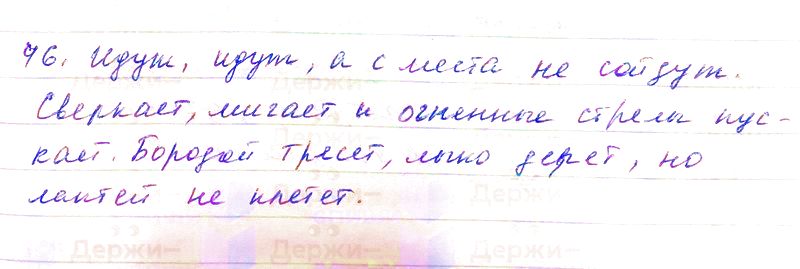 76. Идут, идут, а с места не сойдут.
Сверкает, мигает и огненные стрелы пус-
кает. Бородой тресет, лыко дерет, но
лаптей не плетет.
Держи-
Держи-
Держи-
Держи-
Держи-